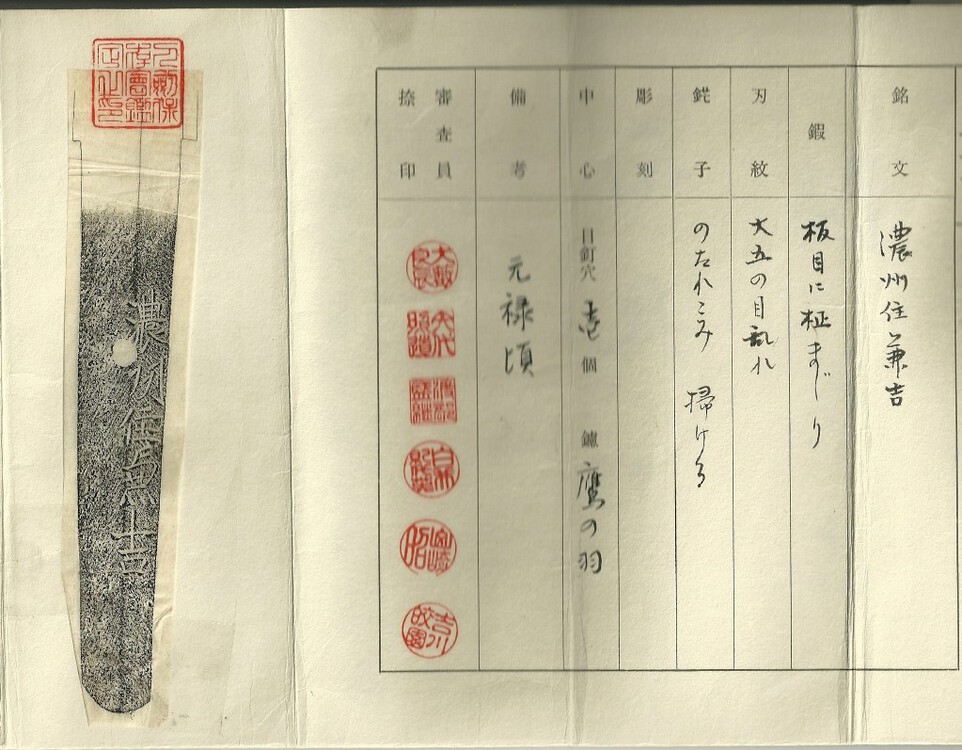 銘文
濃州住兼吉
鍜
板目に柾まじり
刃紋
大五の目乱れ
鋩子
のたれこみ 掃ける
彫刻
中心
目釘穴 壱 個 鑢 鷹の羽
備考
元禄頃
審査員
捺印
吉川
宮崎
濃州住兼吉